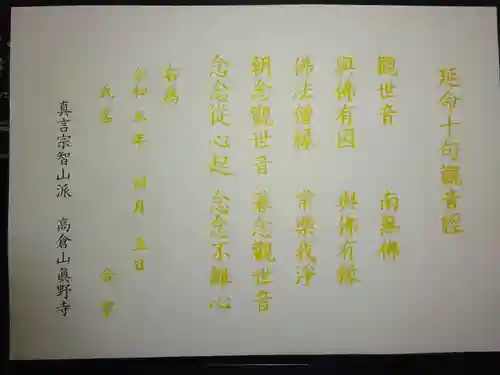 延命十句觀音經
觀世音 南無佛
與佛有因 與佛有緣
佛法僧緣 常樂我淨
朝念觀世音 暮念觀世音
念念從心起 念念不離心
右為
令和五年 四月 五日
氏名 合掌
真言宗智山派 高倉山眞野寺